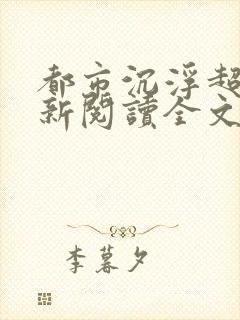 都市沉浮超
新閱讀全文
李暮夕